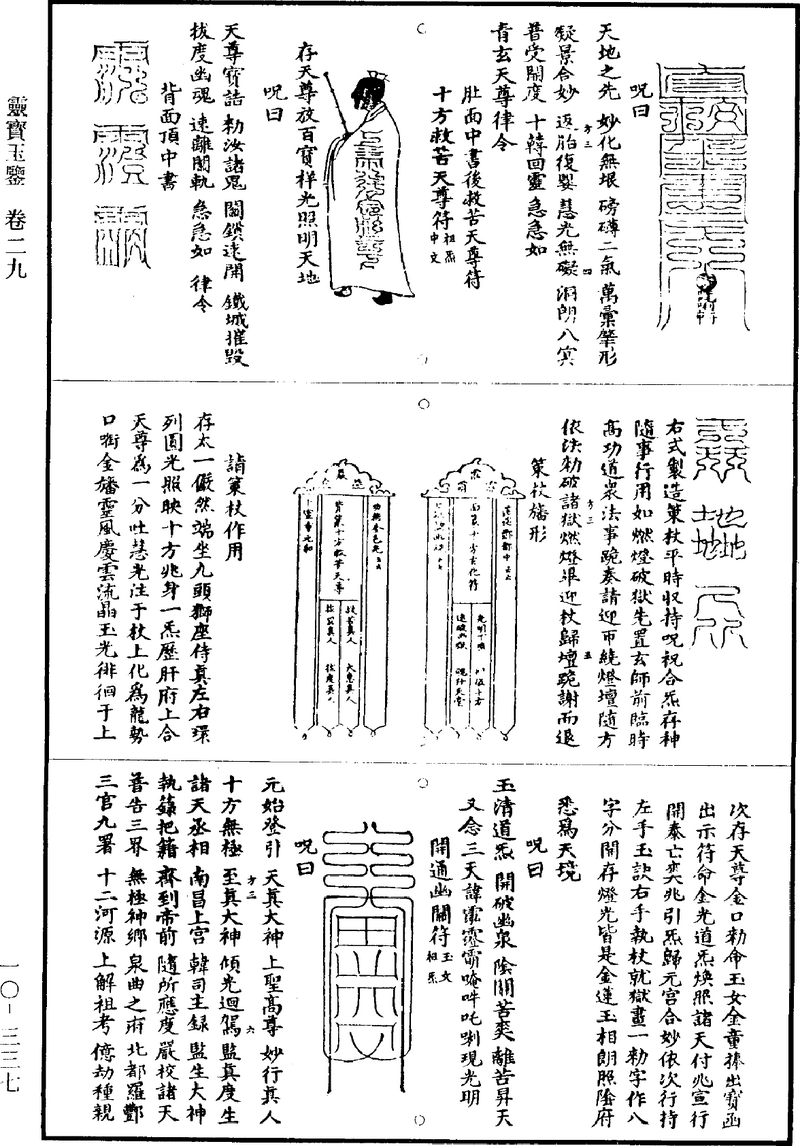 靈寶玉鑒 卷二九
一〇-三三七
呪曰
天地之先 妙化無垠 磅礴二氣 萬彙肇形
凝景合妙 返胎復嬰 慧光無礙 洞朗八冥
普受開度 十轉回靈 急急如
青玄天尊律令
肚面中書後救苦天尊符
十方救苦天尊符
祖炁中文
存天尊放百寶祥光照明天地
呪曰
天尊寶誥 勑汝諸鬼 關鎖遠開 鐵城摧毀
拔度幽魂 速離闇軌 急急如 律令
背面頂中書
右式製造策杖平時収持呪祝合炁存神
隨事行用如燃燈破獄先置玄師前臨時
高功道衆法事跪奏請迎帀繞燈壇隨方
依法勑破諸獄燃燈畢迎杖歸壇跪謝而退
策杖旛形
請策杖作用
存太一儼然端坐九頭獅座侍真左右環
列圓光照映十方兆身一炁歷肝府上合
天尊爲一分吐慧光注于杖上化爲龍勢
口啣金旛靈風慶雲流晶玉光徘徊于上
次存天尊金口勑命玉女金童捧出寶函
出示符命金光道炁煥照諸天付兆宣行
開泰亡奕兆引炁歸元宮合妙依次行持
左手玉訣右手執杖就獄畫一勑字作八
字分開存燈光皆是金蓮玉相朗照陰府
悉爲天境
呪曰
玉清道炁 開破幽泉 陰關苦爽 離苦昇天
又念三天諱 唵吽吒唎現光明
開通幽關符
玉文祖炁
呪曰
元始登引 天真大神 上聖高尊 妙行真人
十方無極 至真大神 傾光迴駕 監真度生
諸天丞相 南昌上宮 韓司主録 監生大神
執籙把籍 齊到帝前 隨所應度 嚴校諸天
普告三界 無極神鄉 泉曲之府 北都羅酆
三官九署 十二河源 上解祖考 億劫種親